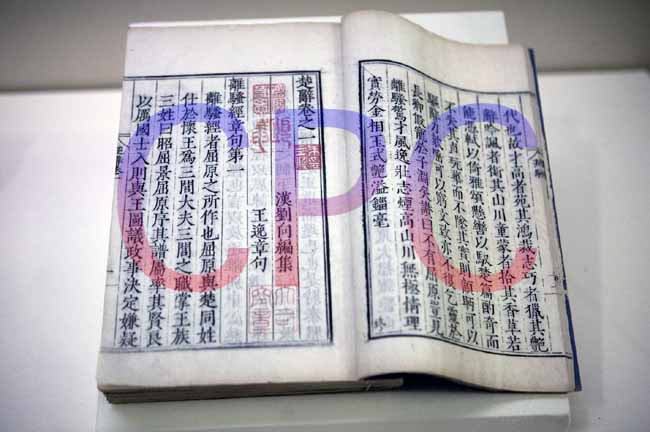 代也故才高者苑其鴻裁志巧者獵其艷
辭吟諷者銜其山川童蒙者拾其香草若
能憑軾以倚雅頌懸轡以馭楚篇酌奇而
不失其真玩華而不墜其實則顧盼可以
驅辭力欬唾可以窮文致亦不復乞靈於
長卿假寵於子淵矣讚曰不有屈原豈見
離騷驚才風逸壯志煙高山川無極情理
實勞金相玉式艷溢錙毫
楚辭卷之一
漢劉向編集
王逸章句
離騷經章句第一
離騷經者屈原之所作也屈原與楚同姓
仕於懷王爲三閭大夫三閭之職掌王族
三姓曰昭屈景屈原序其譜屬率其賢良
以厲國士入則與王圖議政事決定嫌疑